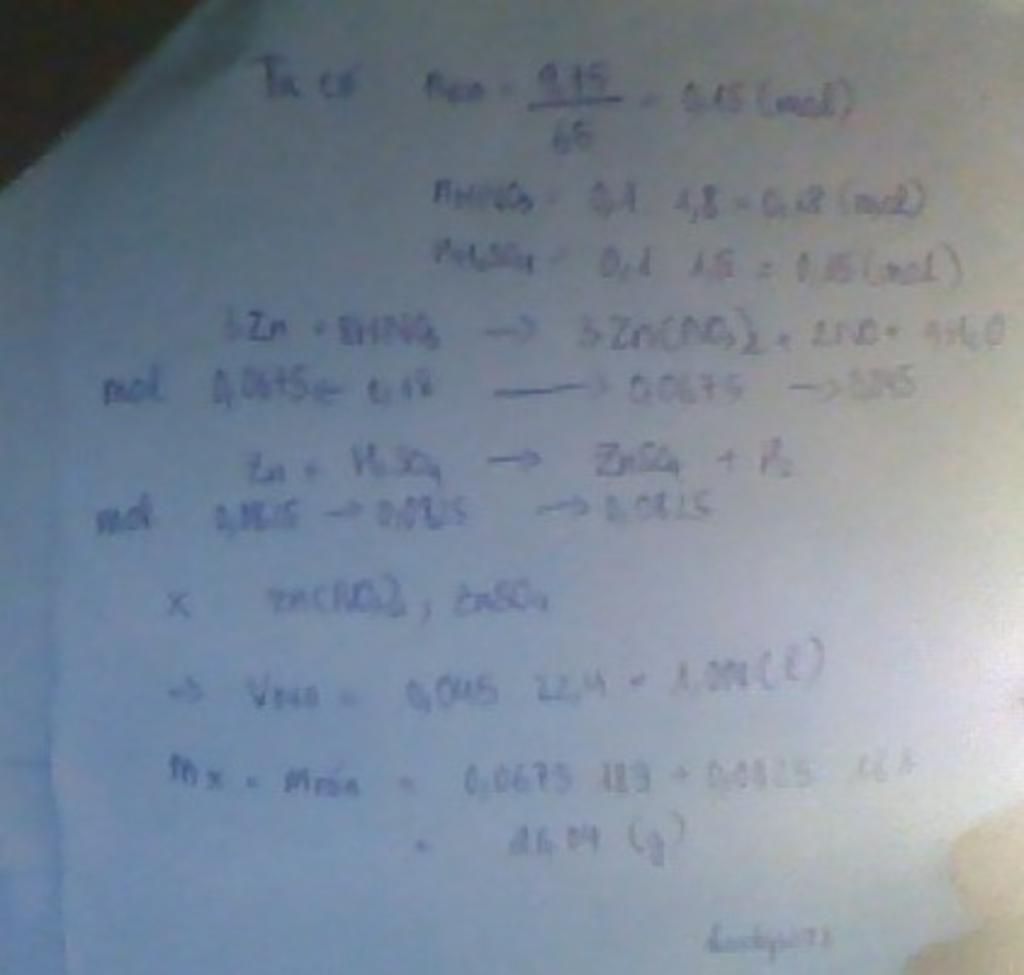 Ta có n = 9,75 / 65 = 0,15 (mol)
nHNO3 = 0,1 1,8 = 0,18 (mol)
nH2SO4 = 0,1 1,5 = 0,15 (mol)
3Zn + 8HNO3 → 3Zn(NO3)2 + 2NO + 4H2O
mol 0,0675 ← 0,18 → 0,0675 → 0,045
Zn + H2SO4 → ZnSO4 + H2
mol 0,0825 → 0,0825 → 0,0825
X Zn(NO3)2, ZnSO4
→ = 0,045 22,4 = (l)
mX = = 0,0675 189 + 0,0825 161
= (g)